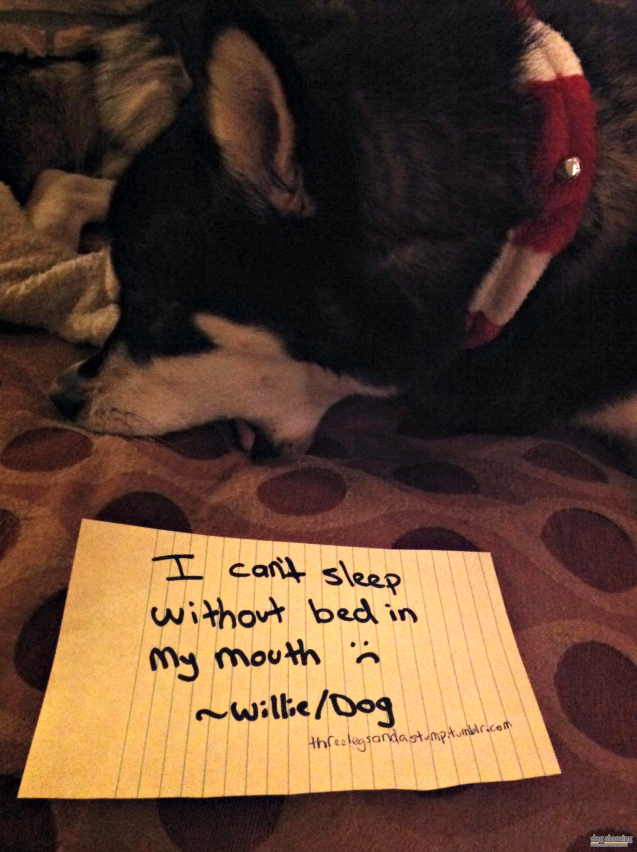 I can't sleep
without bed in
my mouth :(
~Willie/Dog
threelegsandastump.tumblr.com
dog shaming